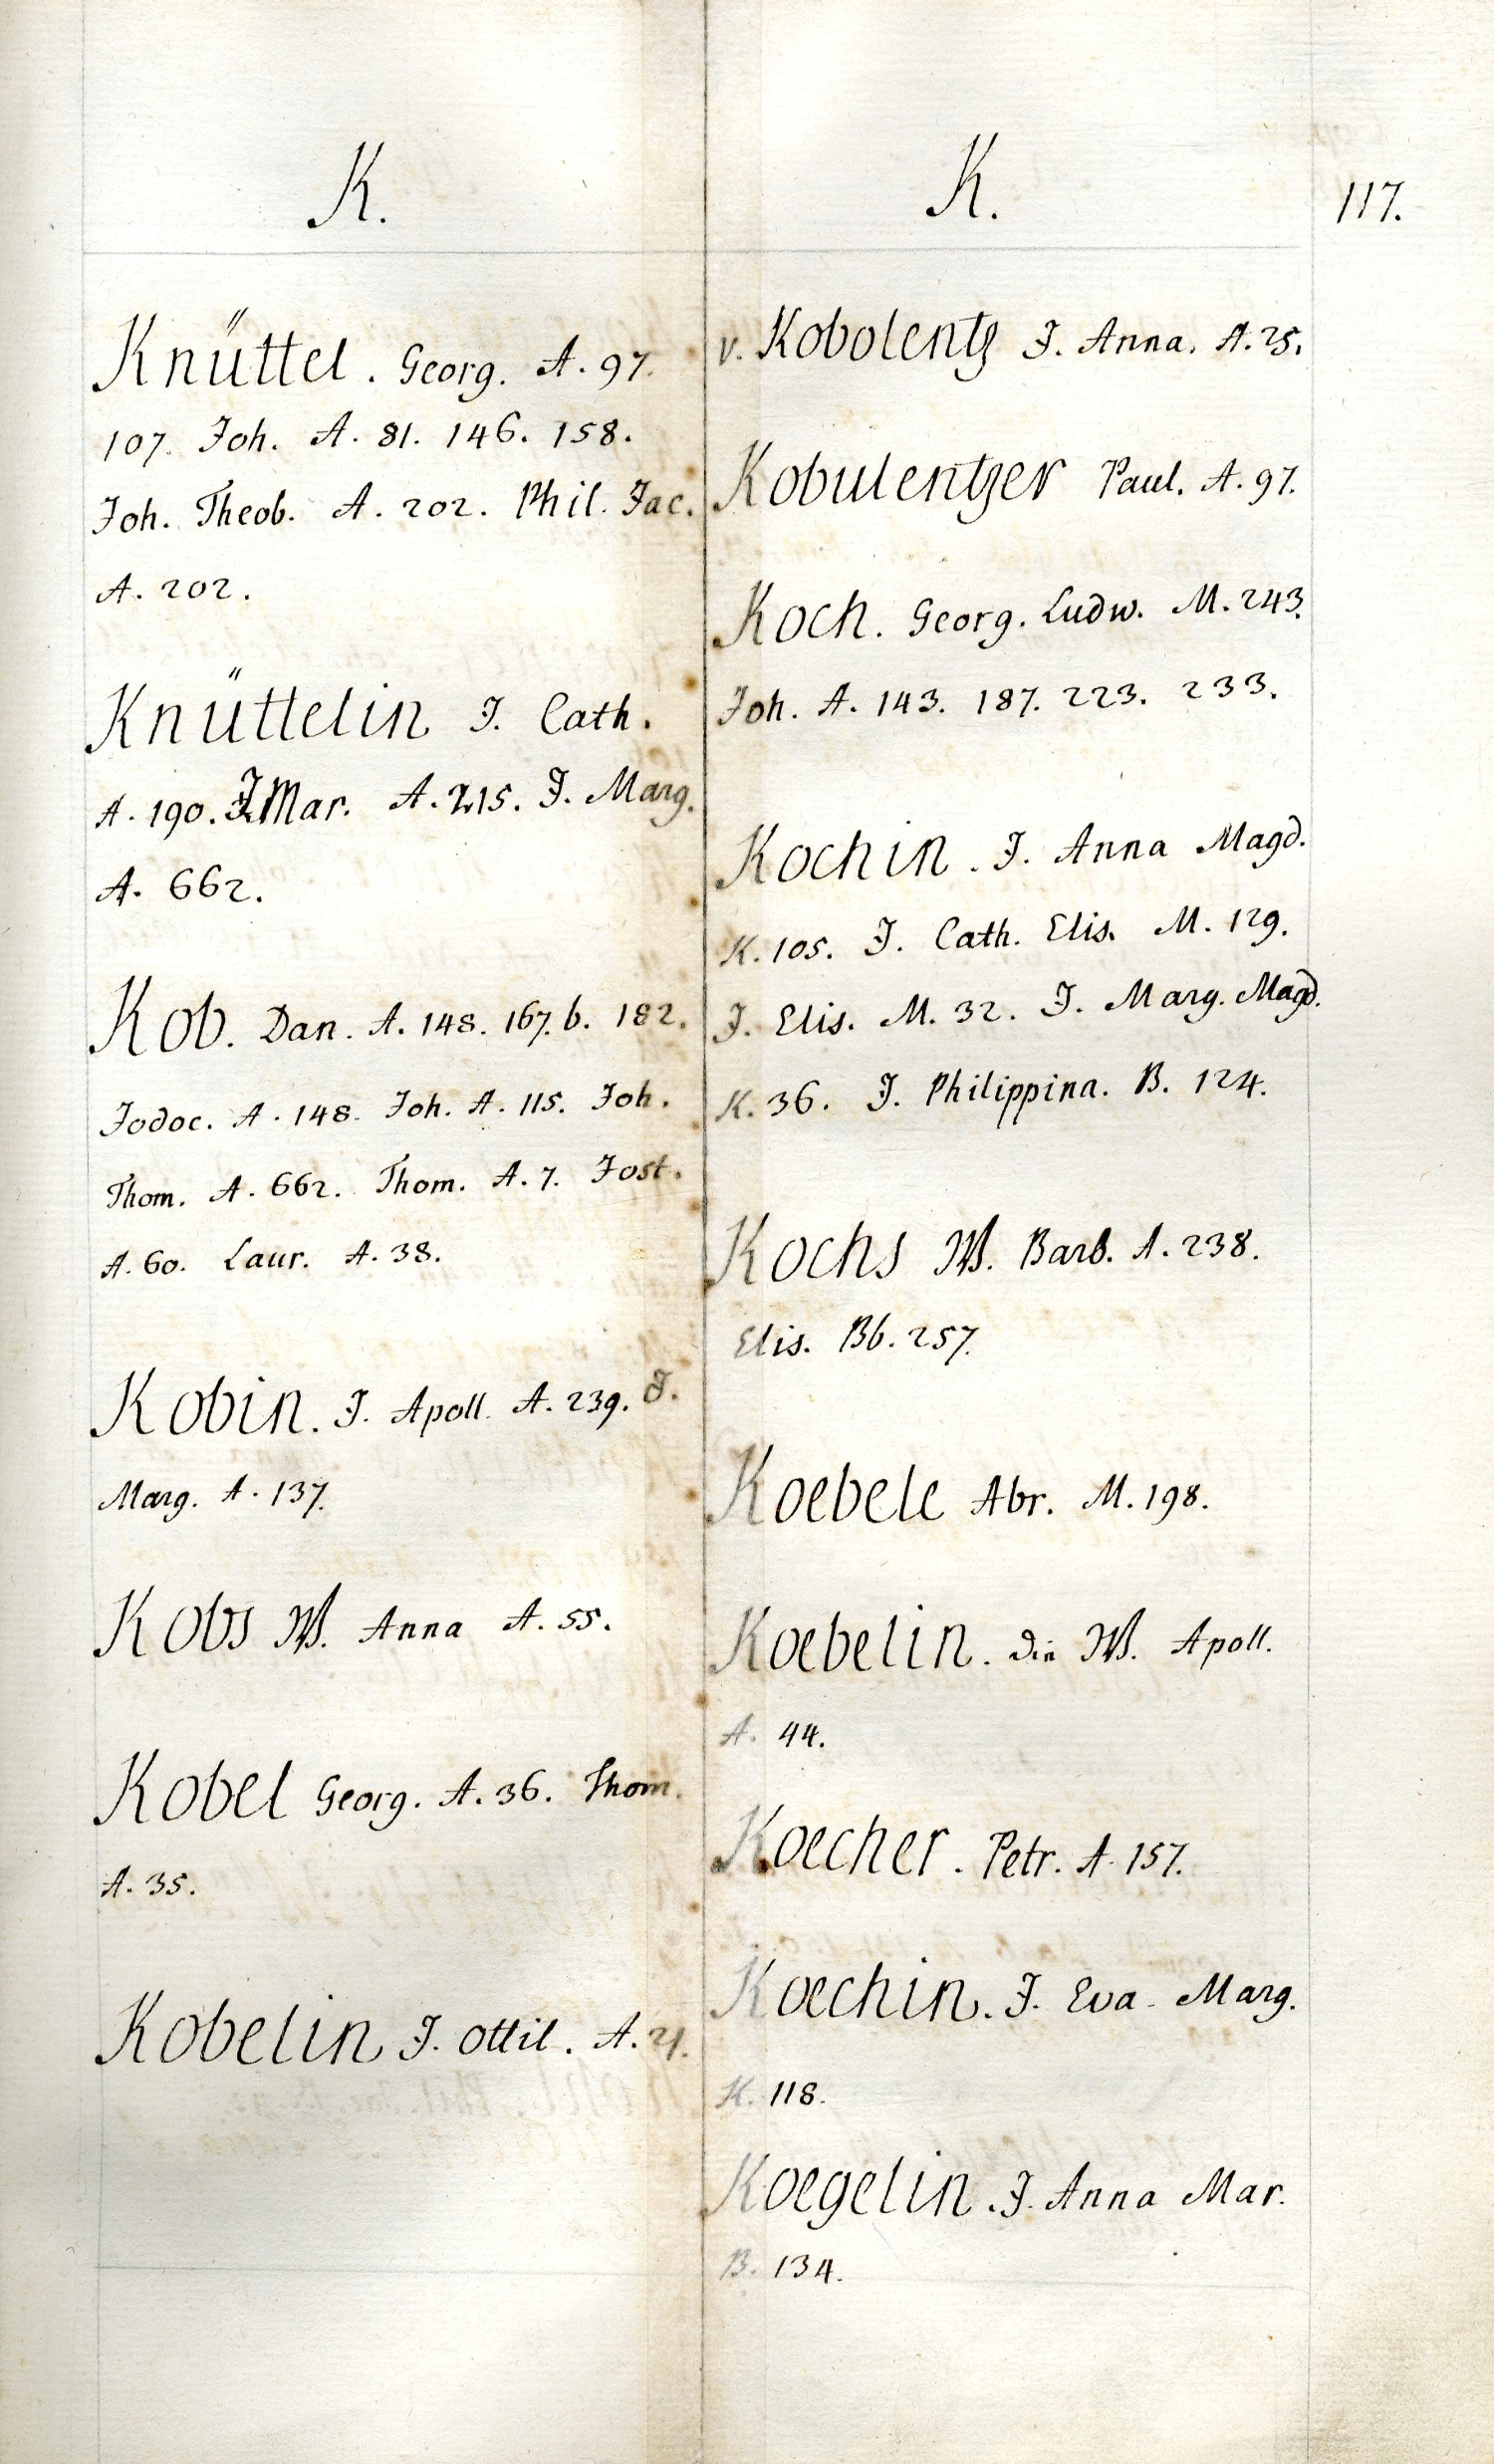 K.
Knüttel. Georg. A. 97.
107. Joh. A. 81. 146. 158.
Joh. Theob. A. 202. Phil. Jac.
A. 202.
Knüttelin J. Cath.
A. 190. J. Mar. A. 215. J. Marg.
A. 662.
Kob. Dan. A. 148. 167. b. 182.
Jodoc. A. 148. Joh. A. 115. Joh.
Thom. A. 662. Thom. A. 7. Jost.
A. 60. Laur. A. 38.
Kobin. J. Apoll. A. 239. J.
Marg. A. 137.
Kobs W. Anna A. 55.
Kobel Georg. A. 36. Thom.
A. 35.
Kobelin J. Ottil. A. 21.
K.
117.
v. Kobolentz J. Anna. A. 25.
Kobulentzer Paul. A. 97.
Koch. Georg. Ludw. M. 243.
Joh. A. 143. 187. 223. 233.
Kochin. J. Anna Magd.
K. 105. J. Cath. Elis. M. 129.
J. Elis. M. 32. J. Marg. Magd.
K. 36. J. Philippina. B. 124.
Kochs W. Barb. A. 238.
Elis. Bb. 257.
Koebele Abr. M. 198.
Koebelin. die W. Apoll.
A. 44.
Koecher. Petr. A. 157.
Koechin. J. Eva Marg.
K. 118.
Koegelin. J. Anna Mar.
B. 134.